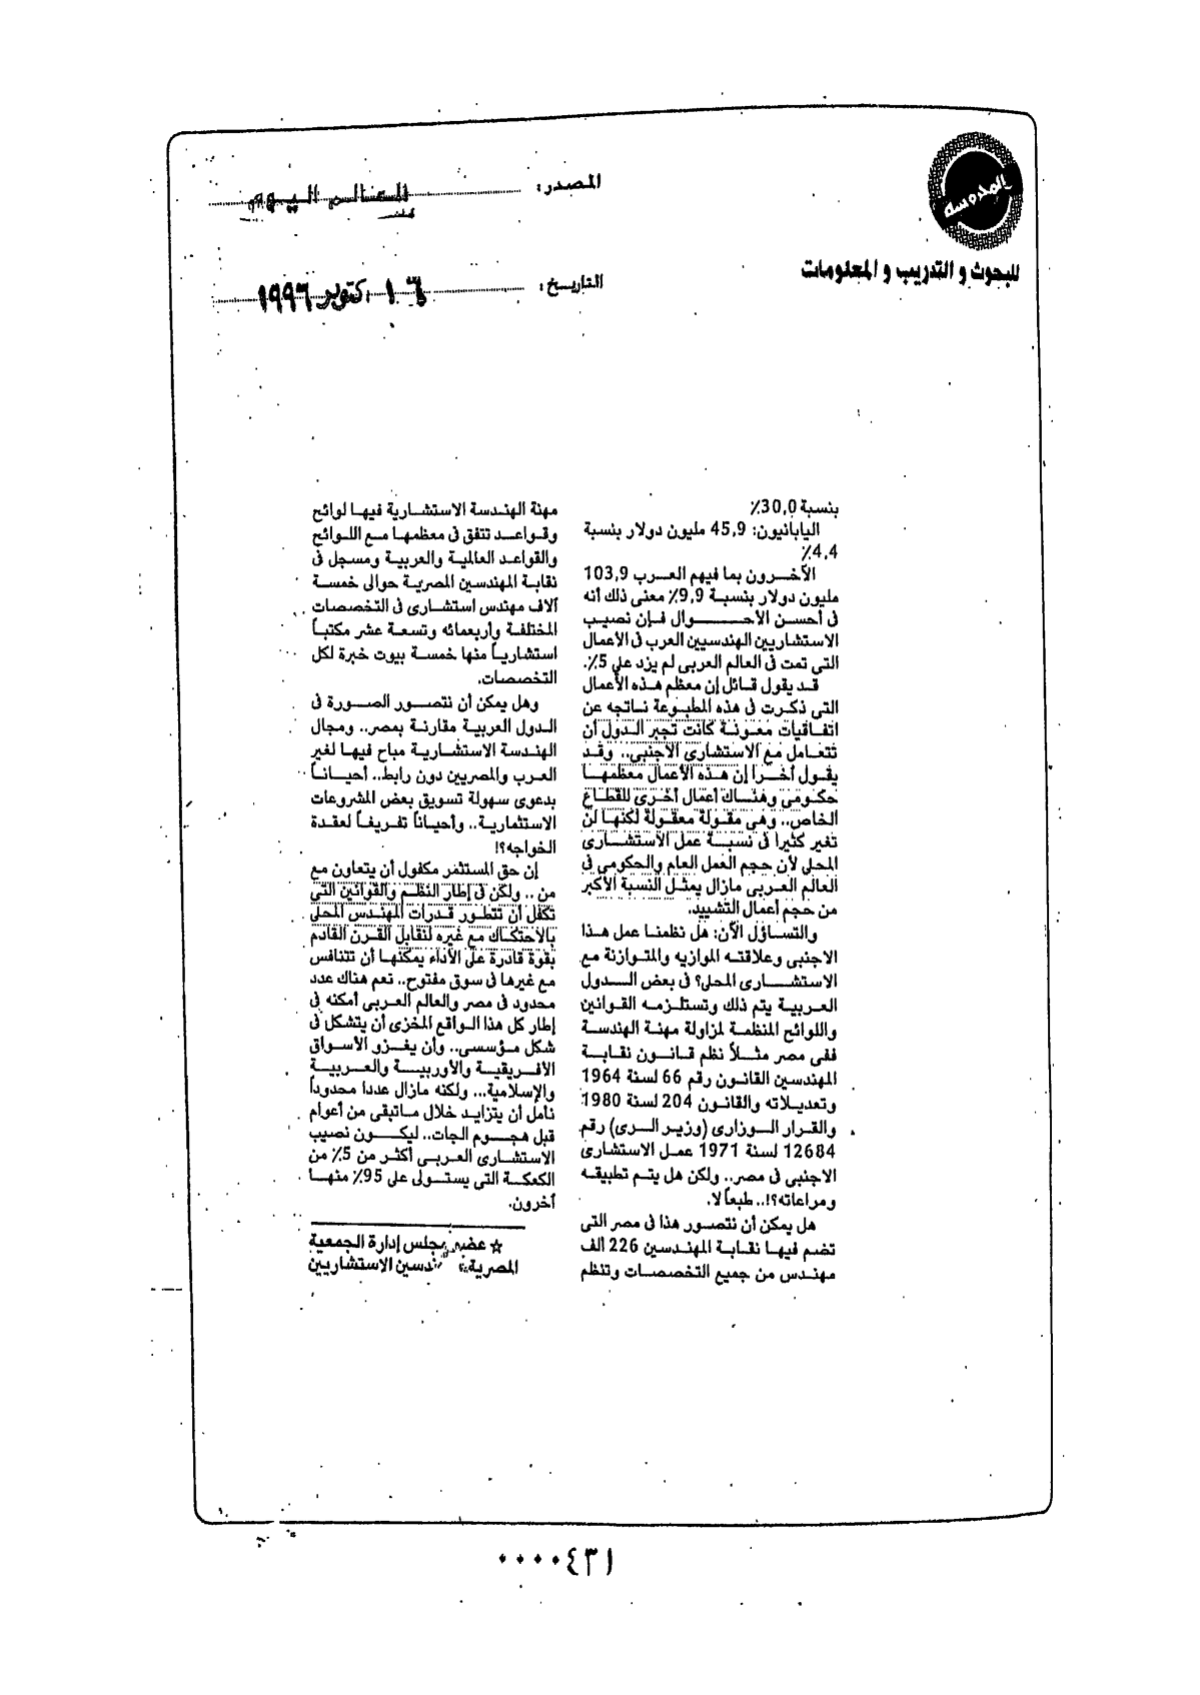 المدوسه
للبحوث و التدريب و المعلومات
المصدر: العالم اليوم
التاريخ: ١٦ اكتوبر ١٩٩٦
بنسبة 30,0٪
اليابانيون: 45,9 مليون دولار بنسبة
4,4٪
الأخرون بما فيهم العرب 103,9
مليون دولار بنسبة 9,9٪ معنى ذلك أنه
فى أحسن الأحوال فإن نصيب
الاستشاريين الهندسيين العرب فى الأعمال
التى تمت فى العالم العربى لم يزد على 5٪.
قد يقول قائل إن معظم هذه الأعمال
التى ذكرت فى هذه المطبوعة ناتجه عن
اتفاقيات معونة كانت تجبر الدول أن
تتعامل مع الاستشارى الأجنبى.. وقد
يقول أخرا إن هذه الأعمال معظمها
حكومى وهناك أعمال أخرى للقطاع
الخاص.. وهى مقولة معقولة لكنها لن
تغير كثيرا فى نسبة عمل الاستشارى
المحلى لأن حجم العمل العام والحكومى فى
العالم العربى مازال يمثل النسبة الأكبر
من حجم أعمال التشييد.
والتساؤل الآن: هل نظمنا عمل هذا
الاجنبى وعلاقته الموازيه والمتوازنة مع
الاستشارى المحلى؟ فى بعض الدول
العربية يتم ذلك وتستلزمه القوانين
واللوائح المنظمة لمزاولة مهنة الهندسة
ففى مصر مثلاً نظم قانون نقابة
المهندسين القانون رقم 66 لسنة 1964
وتعديلاته والقانون 204 لسنة 1980
والقرار الوزارى (وزير الرى) رقم
12684 لسنة 1971 عمل الاستشارى
الاجنبى فى مصر.. ولكن هل يتم تطبيقه
ومراعاته؟!.. طبعاً لا.
هل يمكن أن نتصور هذا فى مصر التى
تضم فيها نقابة المهندسين 226 ألف
مهندس من جميع التخصصات وتنظم
مهنة الهندسة الاستشارية فيها لوائح
وقواعد تتفق فى معظمها مع اللوائح
والقواعد العالمية والعربية ومسجل فى
نقابة المهندسين المصرية حوالى خمسة
آلاف مهندس استشارى فى التخصصات
المختلفة وأربعمائه وتسعة عشر مكتباً
استشارياً منها خمسة بيوت خبرة لكل
التخصصات.
وهل يمكن أن نتصور الصورة فى
الدول العربية مقارنة بمصر.. ومجال
الهندسة الاستشارية مباح فيها لغير
العرب والمصريين دون رابط.. أحياناً
بدعوى سهولة تسويق بعض المشروعات
الاستثمارية.. وأحياناً تفريفاً لعقدة
الخواجه؟!
إن حق المستثمر مكفول أن يتعاون مع
من .. ولكن فى إطار النظم والقوانين التى
تكفل أن تتطور قدرات المهندس المحلى
بالاحتكاك مع غيره لنقابل القرن القادم
بقوة قادرة على الأداء يمكنها أن تتنافس
مع غيرها فى سوق مفتوح.. نعم هناك عدد
محدود فى مصر والعالم العربى أمكنه فى
إطار كل هذا الواقع المخزى أن يتشكل فى
شكل مؤسسى.. وأن يغزو الأسواق
الأفريقية والأوربية والعربية
والإسلامية... ولكنه مازال عددا محدوداً
نامل أن يتزايد خلال ماتبقى من أعوام
قبل هجوم الجات.. ليكون نصيب
الاستشارى العربى أكثر من 5٪ من
الكعكة التى يستولى على 95٪ منها
أخرون.
☆ عضو مجلس إدارة الجمعية
المصرية للمهندسين الاستشاريين
٠٠٠٠٤٣١